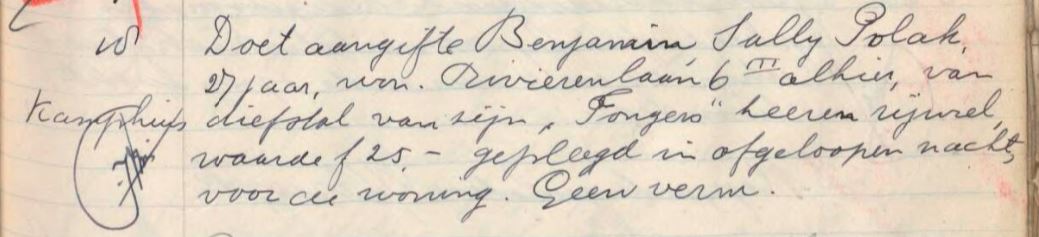 10 Doet aangifte Benjamin Sally Polak,
27 jaar, won. Rivierenlaan 6 III alhier, van
Kamphuis diefstal van zijn „Fongers" heeren rijwiel,
waarde f 25 - gepleegd in afgeloopen nacht,
voor de woning. Geen verm.